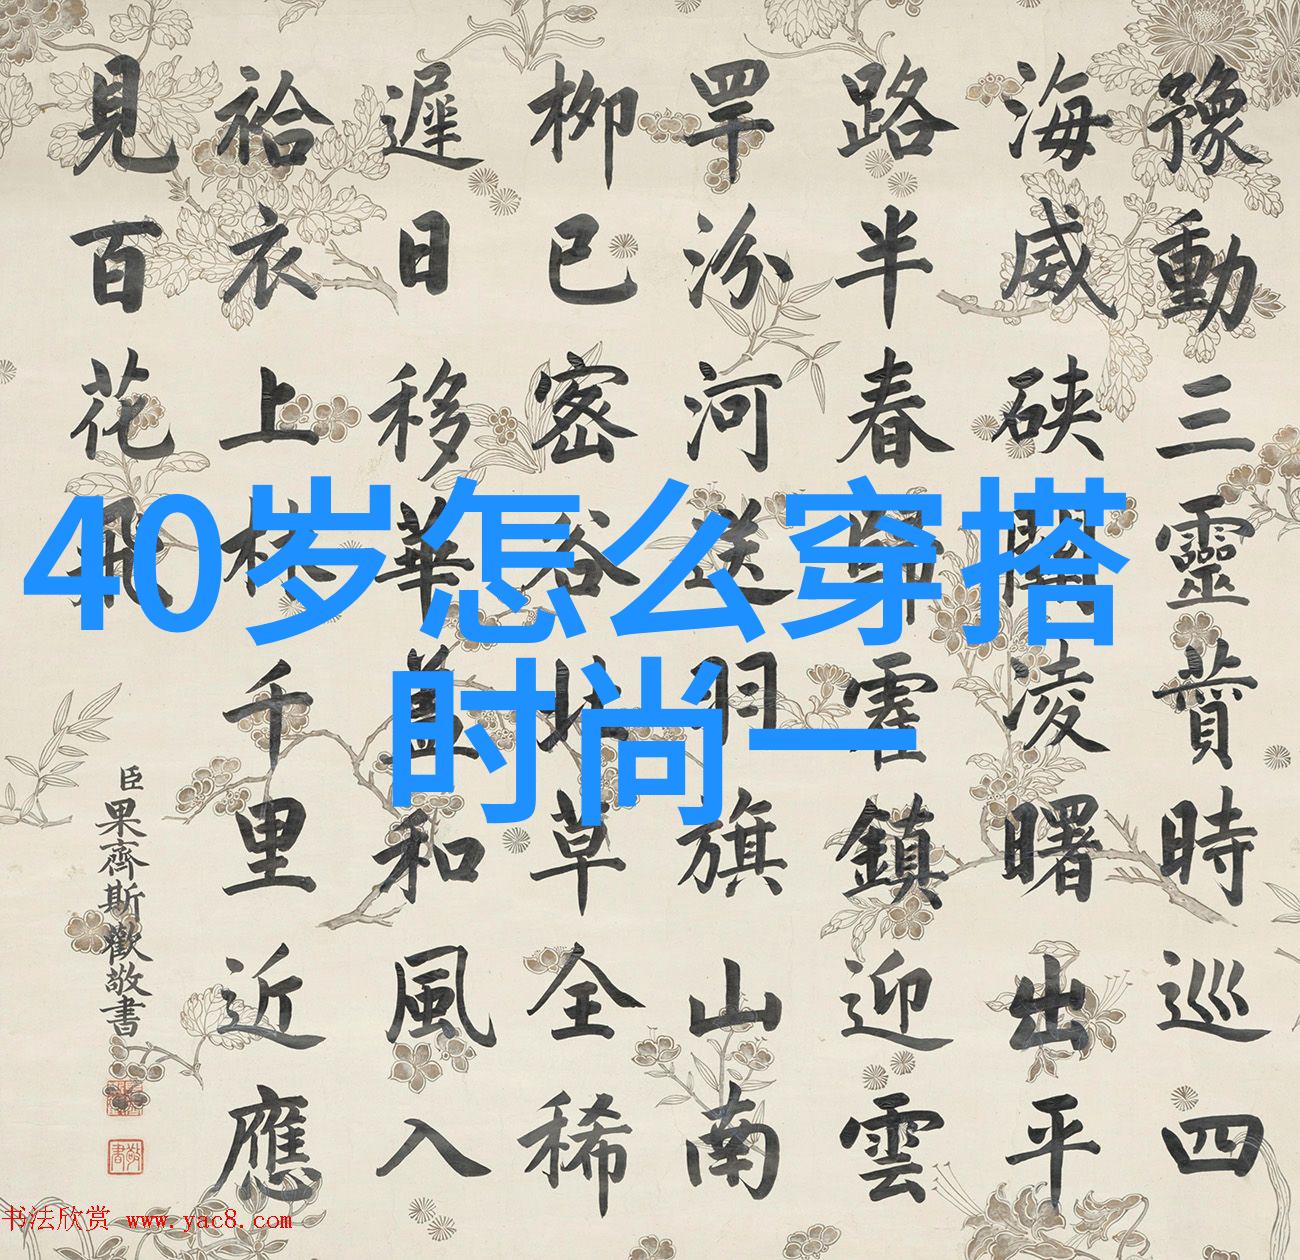 豫動三靈賁時巡四
海威硤關凌曙出平
路半春歸霍鎮迎雲
罕汾河送羽旗山南
柳已密谷北草全稀
遲日移華蓋和風入
袷衣上林千里近應
見百花飛
臣果齊斯歡敬書
40岁怎么穿搭
时尚一
书法欣赏 www.yac8.com